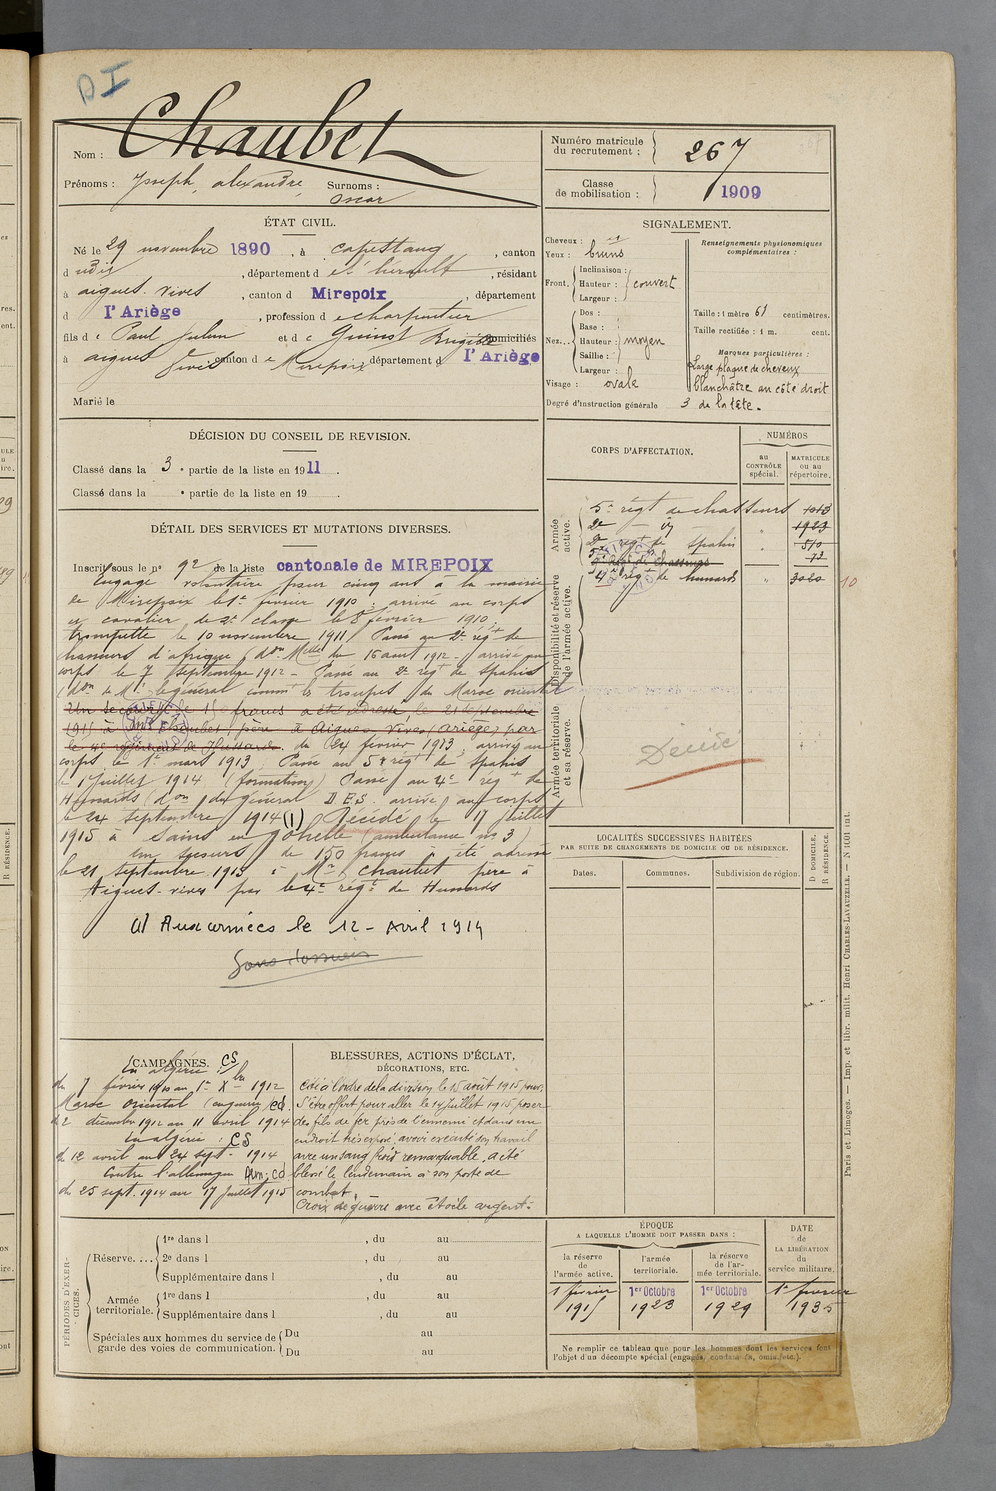 DI
Nom : Chaubet
Prénoms : Joseph, alexandre Surnoms : oscar
Numéro matricule du recrutement : 267
Classe de mobilisation : 1909
ÉTAT CIVIL.
Né le 29 novembre 1890, à Capestang, canton
d udit, département d el hérault, résidant
à aigues-vives, canton d Mirepoix, département
d l'Ariège, profession d e charpentier
fils d e Paul Julien et d e Brigitte domiciliés
à aigues Vives canton d e Mirepoix, département d l'Ariège
Marié le
SIGNALEMENT.
Cheveux :
Yeux : bruns
Front. Inclinaison :
Hauteur : couvert
Largeur :
Nez... Dos :
Base :
Hauteur : moyen
Saillie :
Largeur :
Visage : ovale
Degré d'instruction générale 3
Renseignements physionomiques complémentaires :
Taille : 1 mètre 61 centimètres.
Taille rectifiée : 1 m. cent.
Marques particulières :
Large plaque de cheveux
blanchâtre au côté droit
de la tête.
DÉCISION DU CONSEIL DE REVISION.
Classé dans la 3e partie de la liste en 1911.
Classé dans la e partie de la liste en 19 .
DÉTAIL DES SERVICES ET MUTATIONS DIVERSES.
Inscrit sous le no 92 de la liste cantonale de MIREPOIX
Engagé volontaire pour cinq ans à la mairie
de Mirepoix le 1er février 1910 ; arrivé au corps
et cavalier de 2e classe le 8 février 1910,
trompette le 10 novembre 1911. Passé au 2e régt de
chasseurs d'afrique (don Melle du 16 aout 1912 - arrivé au
corps le 7 septembre 1912 - Passé au 2e régt de Spahis
(don de Mr le général commt les troupes du Maroc oriental
Un secours de 150 francs a été adressé, le 21 septembre
1915 à Mr Chaubet père à Aigues-Vives (ariège) par
le 4e régiment de Hussards. du 24 février 1913, arrivé au
corps le 1er mars 1913. Passé au 5e régt de Spahis
le 1 Juillet 1914 (formation) Passé au 4e régt de
Hussards (don du général D.E.S. arrivé au corps
le 24 septembre 1914 (1) Décédé le 17 Juillet
1915 à Sains en gohelle (ambulance no 3)
un secours de 150 francs a été adressé
le 21 septembre 1915 à Mr Chaubet père à
Aigues-vives par le 4e régt de Hussards
(1) Aux armées le 12 - Avril 1914
Sans dossier
CORPS D'AFFECTATION.
NUMÉROS
au CONTRÔLE spécial.
MATRICULE ou au répertoire.
Armée active.
5e régt de chasseurs 1013
2e - dg 1923
2e régt de Spahis 510
5e 73
4e régt de hussards 3020
10
Disponibilité et réserve de l'armée active.
Armée territoriale et sa réserve.
Décédé
LOCALITÉS SUCCESSIVES HABITÉES
PAR SUITE DE CHANGEMENTS DE DOMICILE OU DE RÉSIDENCE.
D DOMICILE. R RÉSIDENCE.
Dates. Communes. Subdivision de région.
CAMPAGNES.
En algérie : CS
du 7 février 1910 au 1er Xbre 1912
Maroc oriental (en guerre) CD
du 2 décembre 1912 au 11 avril 1914
En algérie : CS
du 12 avril au 24 sept. 1914
Contre l'allemagne CD
du 25 sept. 1914 au 17 Juillet 1915
BLESSURES, ACTIONS D'ÉCLAT,
DÉCORATIONS, ETC.
Cité à l'ordre de la division le 15 août 1915 pour:
S'être offert pour aller le 14 Juillet 1915 poser
des fils de fer près de l'ennemi et dans un
endroit très exposé, avoir exécuté son travail
avec un sang froid remarquable. a été
blessé le lendemain à son poste de
combat.
Croix de guerre avec étoile argent.
PÉRIODES D'EXERCICES.
Réserve.... 1re dans l , du au
2e dans l , du au
Supplémentaire dans l , du au
Armée territoriale. 1re dans l , du au
Supplémentaire dans l , du au
Spéciales aux hommes du service de garde des voies de communication. Du au
Du au
ÉPOQUE
A LAQUELLE L'HOMME DOIT PASSER DANS :
la réserve de l'armée active.
l'armée territoriale.
la réserve de l'armée territoriale.
DATE de LA LIBÉRATION du service militaire.
1 février 1915
1er Octobre 1923
1er Octobre 1929
1er février 1935
Ne remplir ce tableau que pour les hommes dont les services font
l'objet d'un décompte spécial (engagés, condamnés, omis, etc.).
Paris et Limoges. — Imp. et libr. milit. Henri CHARLES-LAVAUZELLE. — N 1001 int.